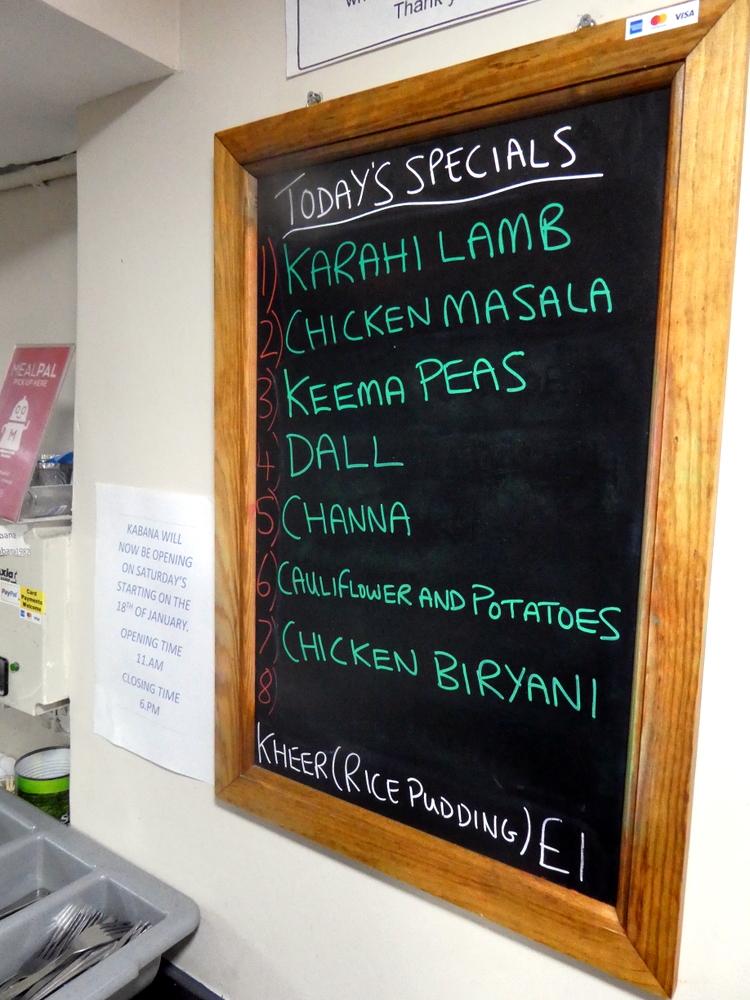 Thank
VISA
TODAY'S SPECIALS
1) KARAHI LAMB
2) CHICKEN MASALA
3) KEEMA PEAS
4) DALL
5) CHANNA
6) CAULIFLOWER AND POTATOES
7) CHICKEN BIRYANI
8)
KHEER (RICE PUDDING) £1
MEALPAL
PICK UP HERE
M
KABANA WILL
NOW BE OPENING
ON SATURDAY'S
STARTING ON THE
18TH OF JANUARY.
OPENING TIME
11.AM
CLOSING TIME
6.PM
PayPal
Card
Payments
Welcome